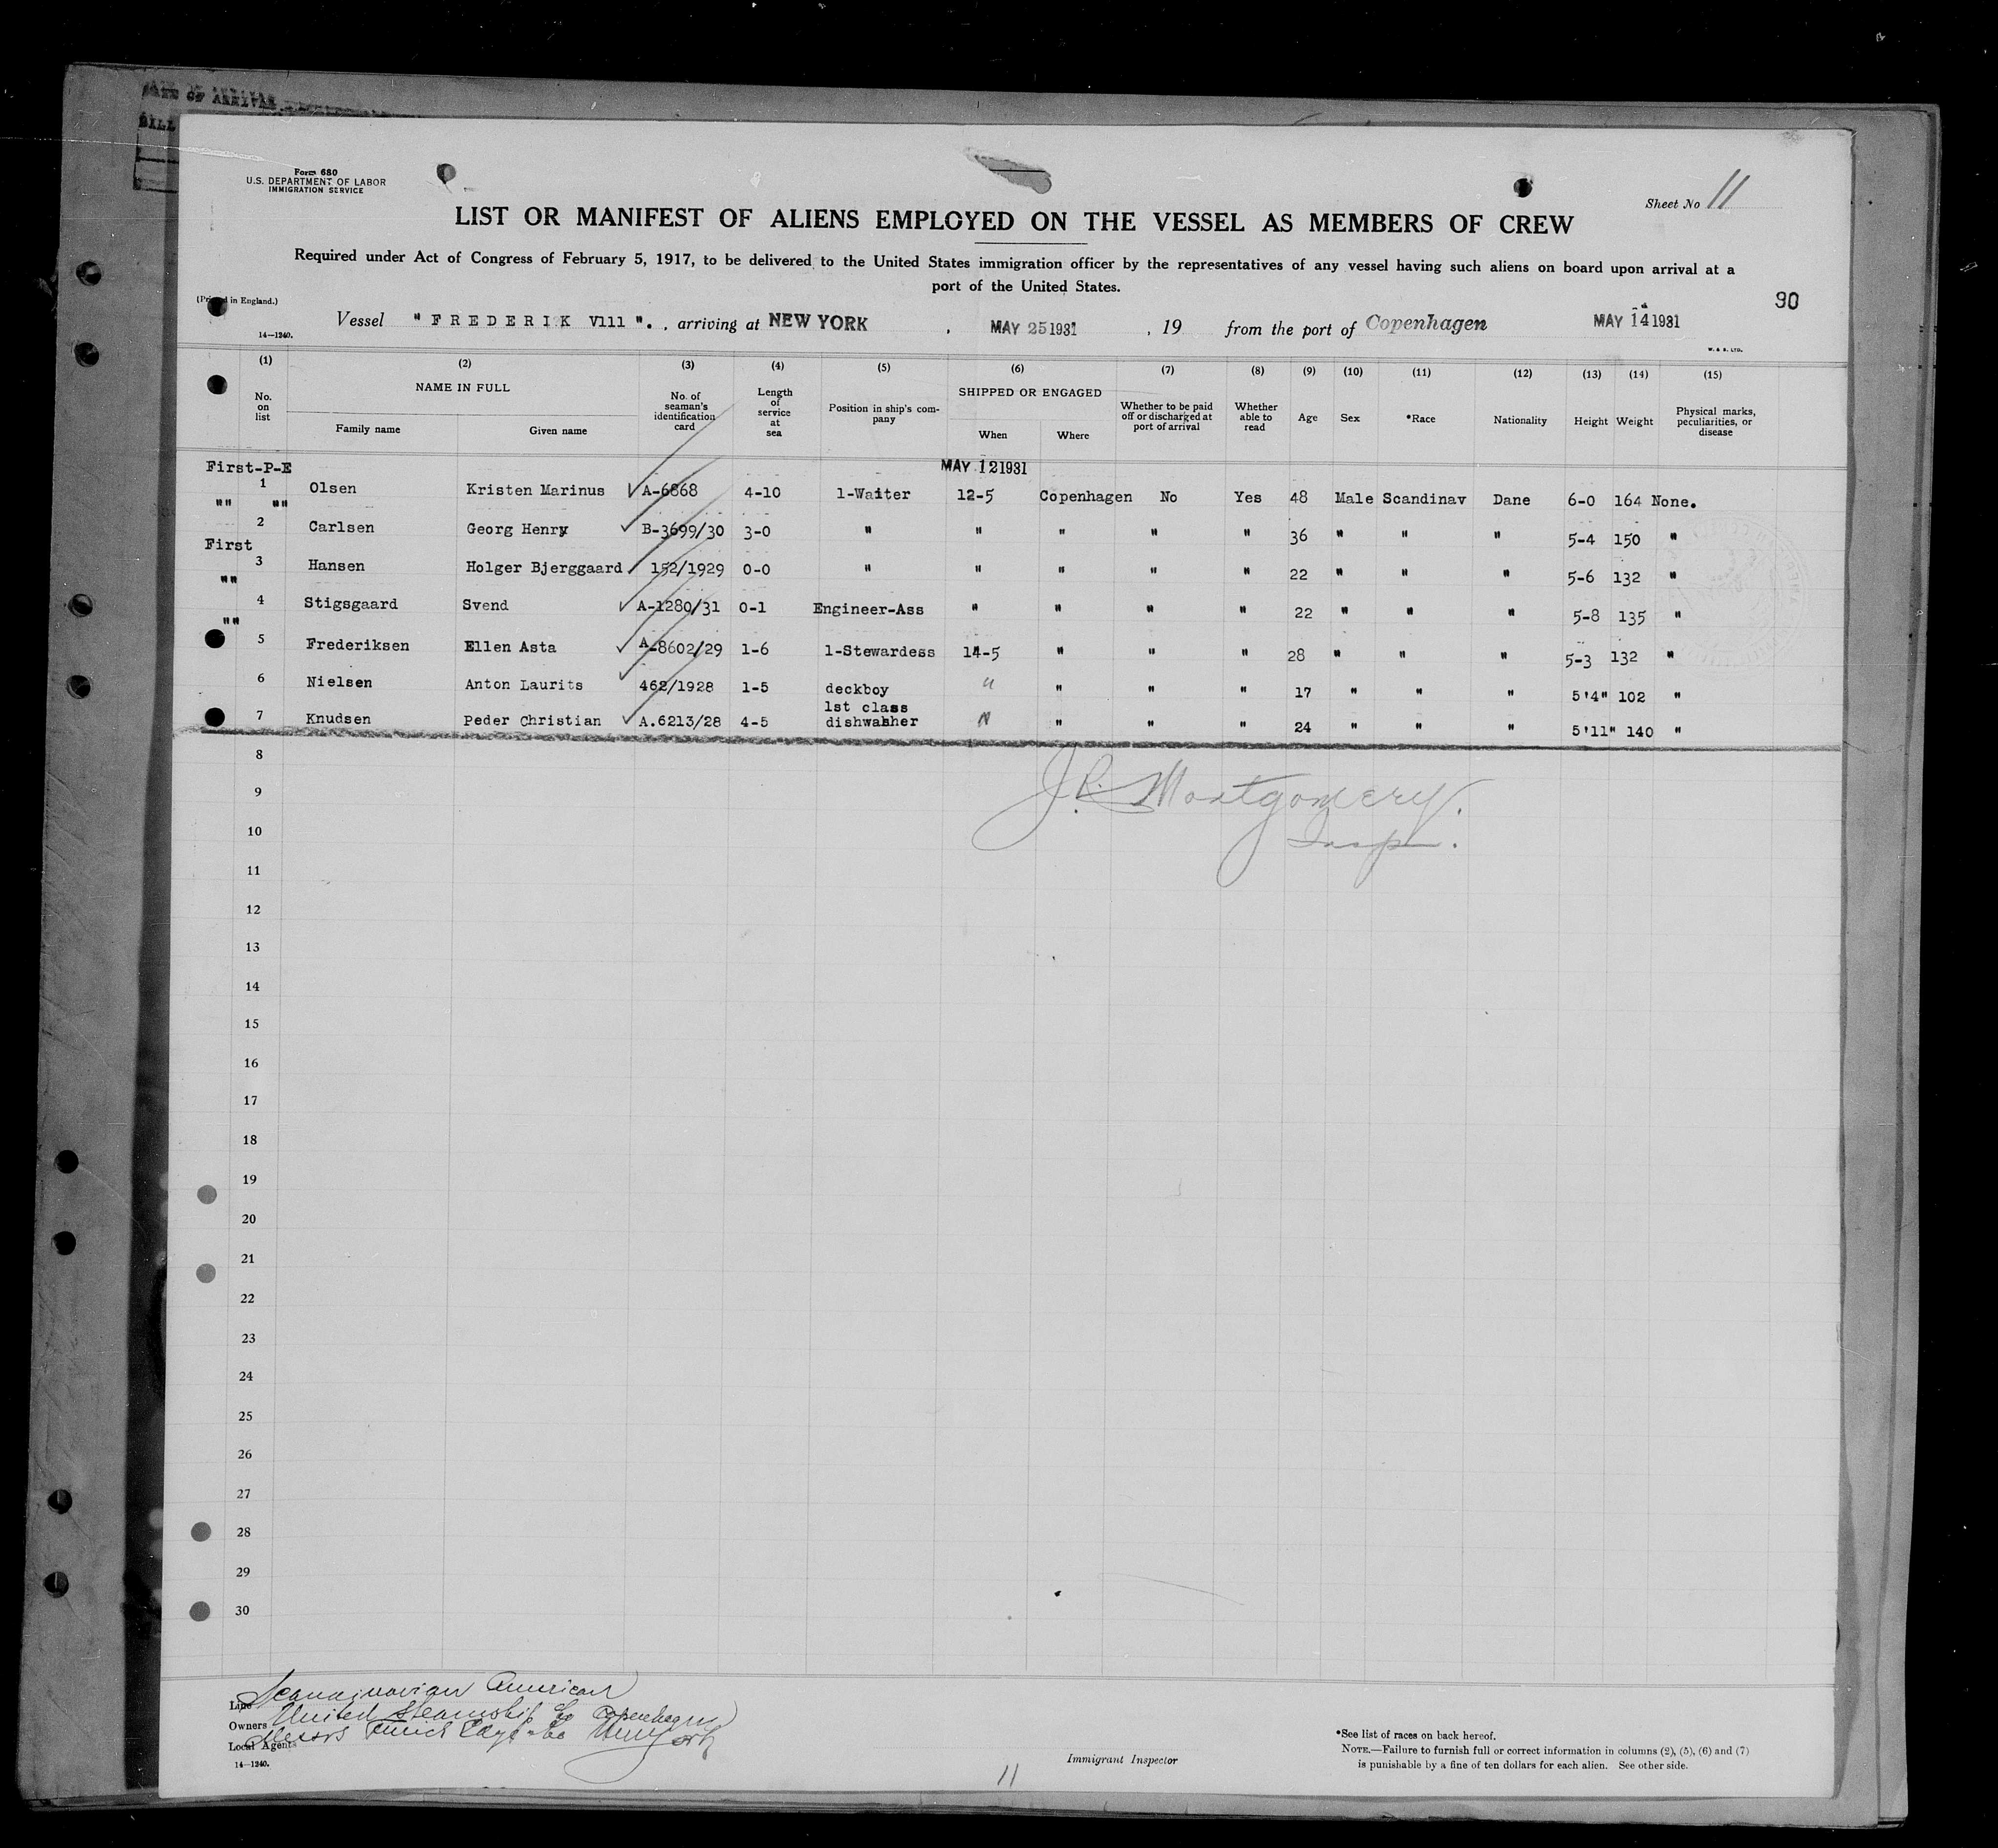 DATE OF ARRIVAL
Form 680
U.S. DEPARTMENT OF LABOR
IMMIGRATION SERVICE
Sheet No 11
LIST OR MANIFEST OF ALIENS EMPLOYED ON THE VESSEL AS MEMBERS OF CREW
Required under Act of Congress of February 5, 1917, to be delivered to the United States immigration officer by the representatives of any vessel having such aliens on board upon arrival at a
port of the United States.
90
in England.)
14—1240.
Vessel "FREDERIK V111"., arriving at NEW YORK, MAY 25 1931, 19 from the port of Copenhagen MAY 14 1931
W. & S. LTD.
(1) (2) (3) (4) (5) (6) (7) (8) (9) (10) (11) (12) (13) (14) (15)
No. on list NAME IN FULL Family name Given name No. of seaman's identification card Length of service at sea Position in ship's company SHIPPED OR ENGAGED When Where Whether to be paid off or discharged at port of arrival Whether able to read Age Sex *Race Nationality Height Weight Physical marks, peculiarities, or disease
First-P-E MAY 12 1931
1 Olsen Kristen Marinus A-6868 4-10 1-Waiter 12-5 Copenhagen No Yes 48 Male Scandinav Dane 6-0 164 None.
"" ""
2 Carlsen Georg Henry B-3699/30 3-0 " " " " " 36 " " " 5-4 150 "
First
3 Hansen Holger Bjerggaard 152/1929 0-0 " " " " " 22 " " " 5-6 132 "
""
4 Stigsgaard Svend A-1280/31 0-1 Engineer-Ass " " " " 22 " " " 5-8 135 "
""
5 Frederiksen Ellen Asta A-8602/29 1-6 1-Stewardess 14-5 " " " 28 " " " 5-3 132 "
6 Nielsen Anton Laurits 462/1928 1-5 deckboy " " " " 17 " " " 5'4" 102 "
1st class
7 Knudsen Peder Christian A.6213/28 4-5 dishwahher " " " " 24 " " " 5'11" 140 "
8
J.R. Montgomery.
9
Insp.
10
11
12
13
14
15
16
17
18
19
20
21
22
23
24
25
26
27
28
29
30
Line Scandinavian American
Owners United Steamship Co Copenhagen
Local Agents Messrs
14—1240.
11
Immigrant Inspector
*See list of races on back hereof.
NOTE.—Failure to furnish full or correct information in columns (2), (5), (6) and (7)
is punishable by a fine of ten dollars for each alien. See other side.